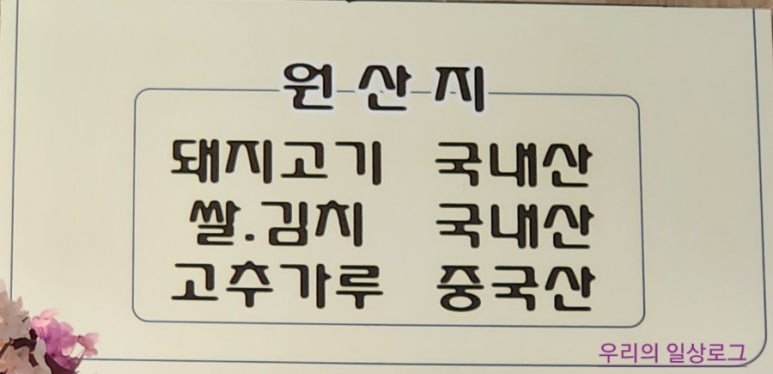 원산지
돼지고기 국내산
쌀.김치 국내산
고추가루 중국산
우리의 일상로그